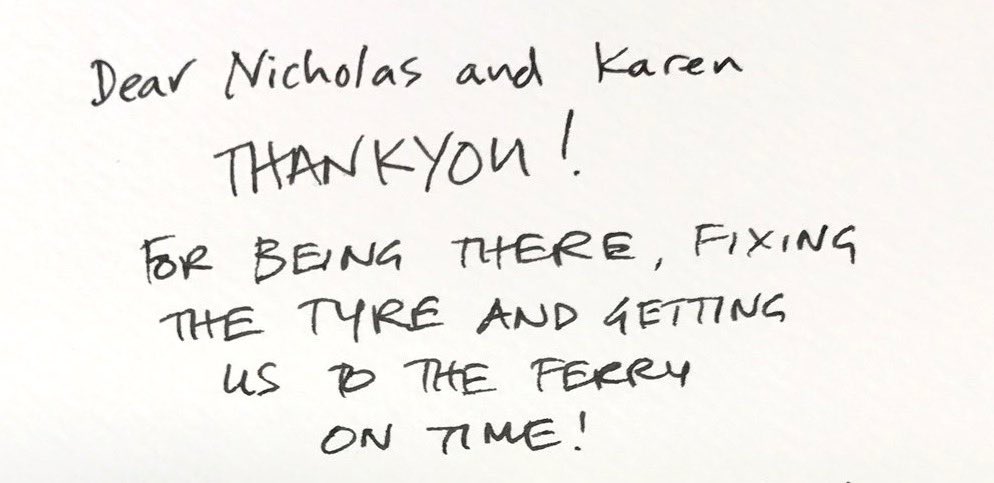 Dear Nicholas and Karen
THANKYOU!
FOR BEING THERE, FIXING
THE TYRE AND GETTING
US TO THE FERRY
ON TIME!